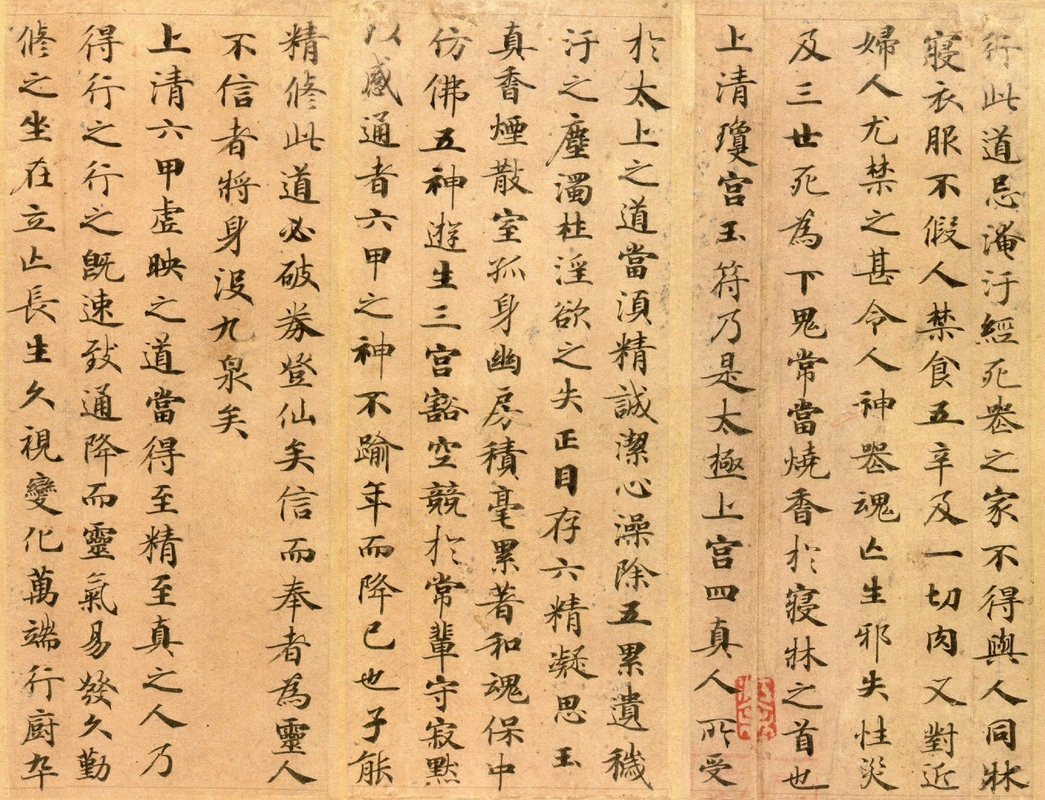 行此道忌淹汙經死喪之家不得與人同牀
寢衣服不假人禁食五辛及一切肉又對近
婦人尤禁之甚令人神喪魂亡生邪失性災
及三世死為下鬼常當燒香於寢牀之首也
上清瓊宮玉符乃是太極上宮四真人所受
於太上之道當須精誠潔心澡除五累遺穢
汙之塵濁杜淫欲之失正目存六精凝思玉
真香煙散室孤身幽房積毫累著和魂保中
仿佛五神遊生三宮豁空競於常輩守寂默
以感通者六甲之神不踰年而降己也子能
精修此道必破券登仙矣信而奉者為靈人
不信者將身沒九泉矣
上清六甲虛映之道當得至精至真之人乃
得行之行之既速致通降而靈氣易發久勤
修之坐在立亡長生久視變化萬端行廚卒